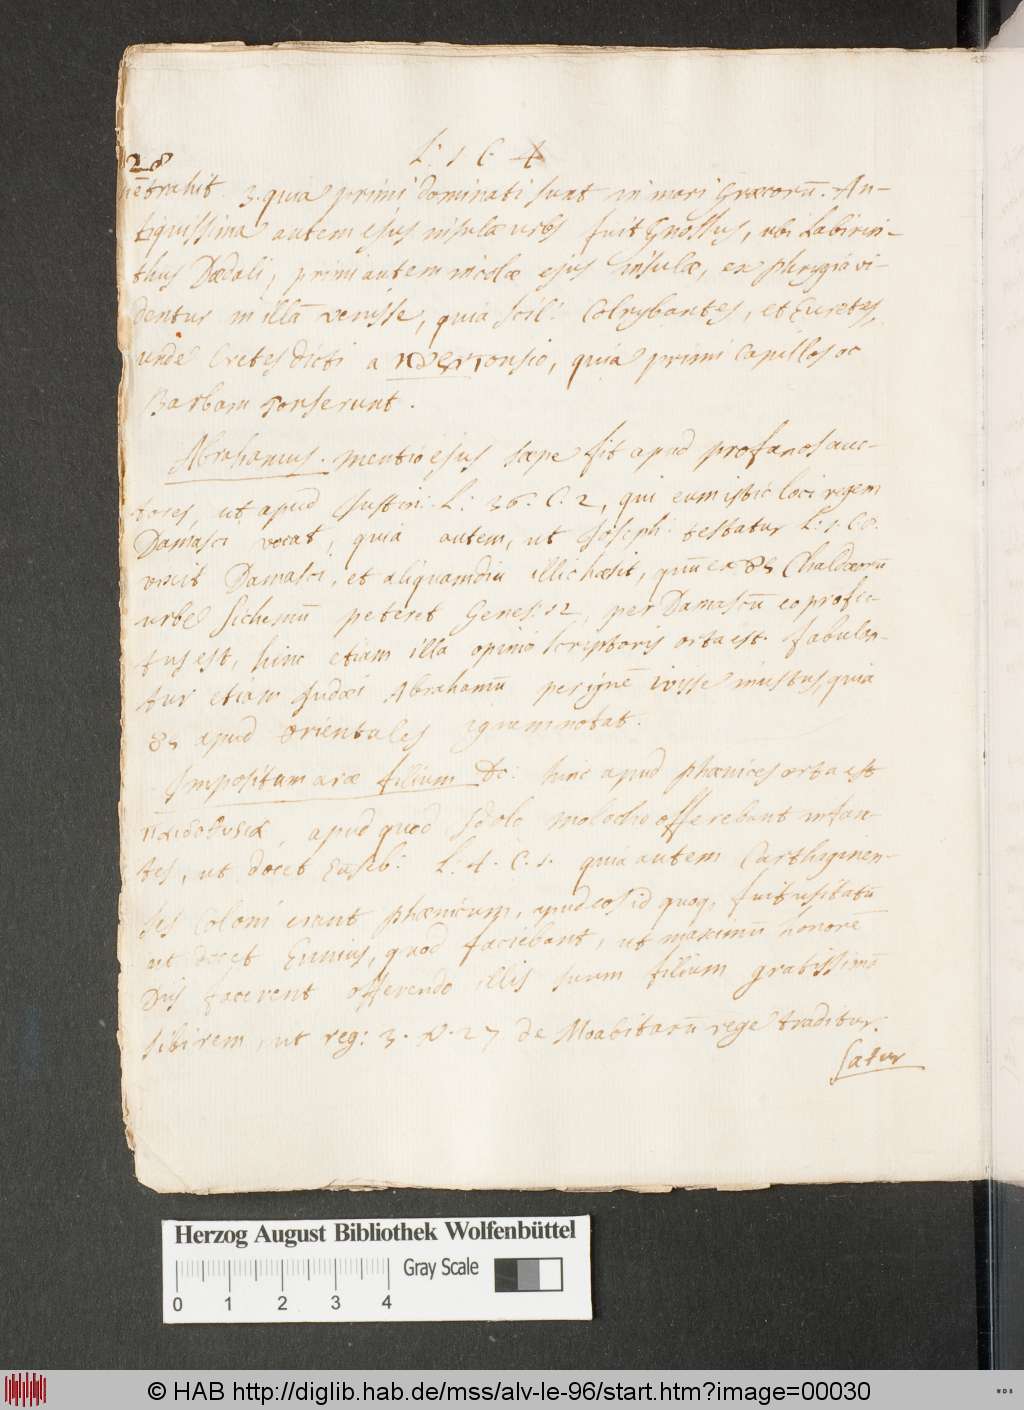 28
L: 1 C. 4
netrahit. 3. quia primi dominati sunt in mari Graecorū. An-
tiquissima autem ejus insulae urbs fuit Gnossus, ubi Labirin-
thus Daedali, primi autem incolae ejus insulae, ex phrygia vi-
dentur in illā venisse, quia scil: Colrybantes, et Curetes,
unde Cretes dicti a tonsio, quia primi capillos ac
Barbam tonserunt.
Abrahamus. mentio ejus saepe fit apud profanos auc-
tores, ut apud Justin: L: 36. C. 2, qui eum istic loci regem
Damasci vocat, quia autem, ut Joseph: testatur L: 1. C 8.
vixit Damasci, et aliquamdiu illic haesit, qūu ex Chaldaeorū
urbe Sichemū peteret Genes: 12, per Damascū eo profec-
tus est, hinc etiam illa opinio scriptoris orta est. fabulan-
tur etiam Judaei Abrahamū per ignē ivisse mustus, quia
apud orientales ignem notat.
Impositum arae filium &c: hinc apud phaenices orta est
apud quod Idolo Molocho offerebant infan-
tes, ut docet Euseb: L: 4. C. 1. quia autem Carthaginen-
ses Coloni erant phaenicum, apud eos id quoq, fuit usitatū
ut docet Ennius, quod faciebant, ut maximū honorē
Diis facerent offerendo illis suum filium gratissimā
sibi rem, ut reg: 3. V. 27 de Moabitarū rege traditur.
Satur
Herzog August Bibliothek Wolfenbüttel
Gray Scale
0 1 2 3 4
© HAB http://diglib.hab.de/mss/alv-le-96/start.htm?image=00030